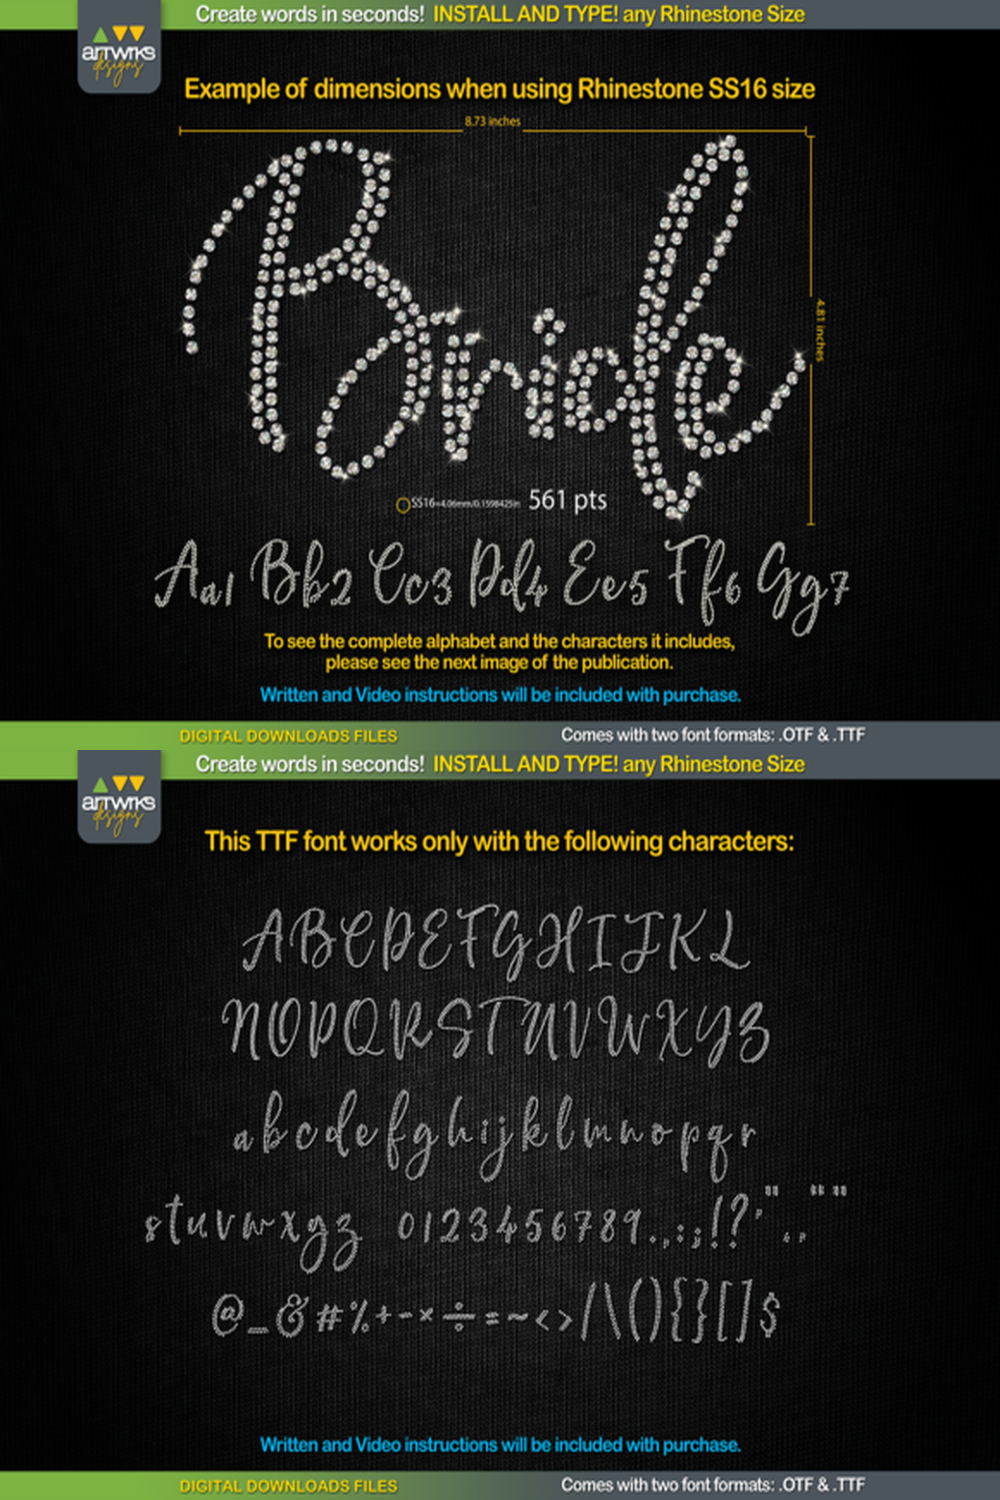 Create words in seconds! INSTALL AND TYPE! any Rhinestone Size
artwrks
designs
Example of dimensions when using Rhinestone SS16 size
8.73 inches
Bride
4.81 inches
SS16=4.06mm/0.1598425in 561 pts
Aa1 Bb2 Cc3 Dd4 Ee5 Ff6 Gg7
To see the complete alphabet and the characters it includes,
please see the next image of the publication.
Written and Video instructions will be included with purchase.
DIGITAL DOWNLOADS FILES Comes with two font formats: .OTF & .TTF
Create words in seconds! INSTALL AND TYPE! any Rhinestone Size
artwrks
designs
This TTF font works only with the following characters:
ABCDEFGHIJKL
NOPQRSTUVWXYZ
abcdefghijklmnopqr
stuvwxyz 0123456789.,:;!?'"‚„“”
@_&#%+-×÷=~<>/\(){}[]$
Written and Video instructions will be included with purchase.
DIGITAL DOWNLOADS FILES Comes with two font formats: .OTF & .TTF